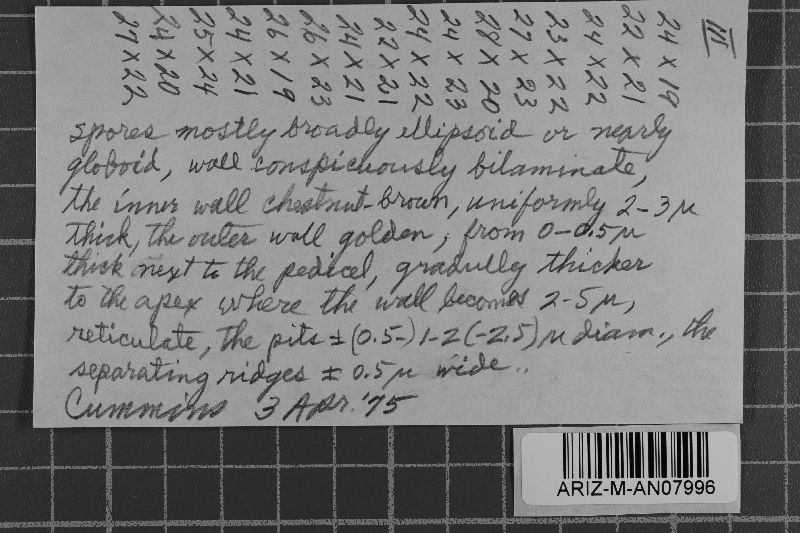 III
24 X 19
22 X 21
24 X 22
23 X 22
27 X 23
28 X 20
24 X 23
24 X 22
22 X 21
24 X 21
26 X 23
26 X 19
24 X 21
25 X 24
24 X 20
27 X 22
spores mostly broadly ellipsoid or nearly
globoid, wall conspicuously bilaminate,
the inner wall chestnut-brown, uniformly 2-3 µ
thick, the outer wall golden, from 0-0.5 µ
thick next to the pedicel, gradually thicker
to the apex where the wall becomes 2-5 µ,
reticulate, the pits ± (0.5-) 1-2 (-2.5) µ diam., the
separating ridges ± 0.5 µ wide..
Cummins 3 Apr. '75
ARIZ-M-AN07996